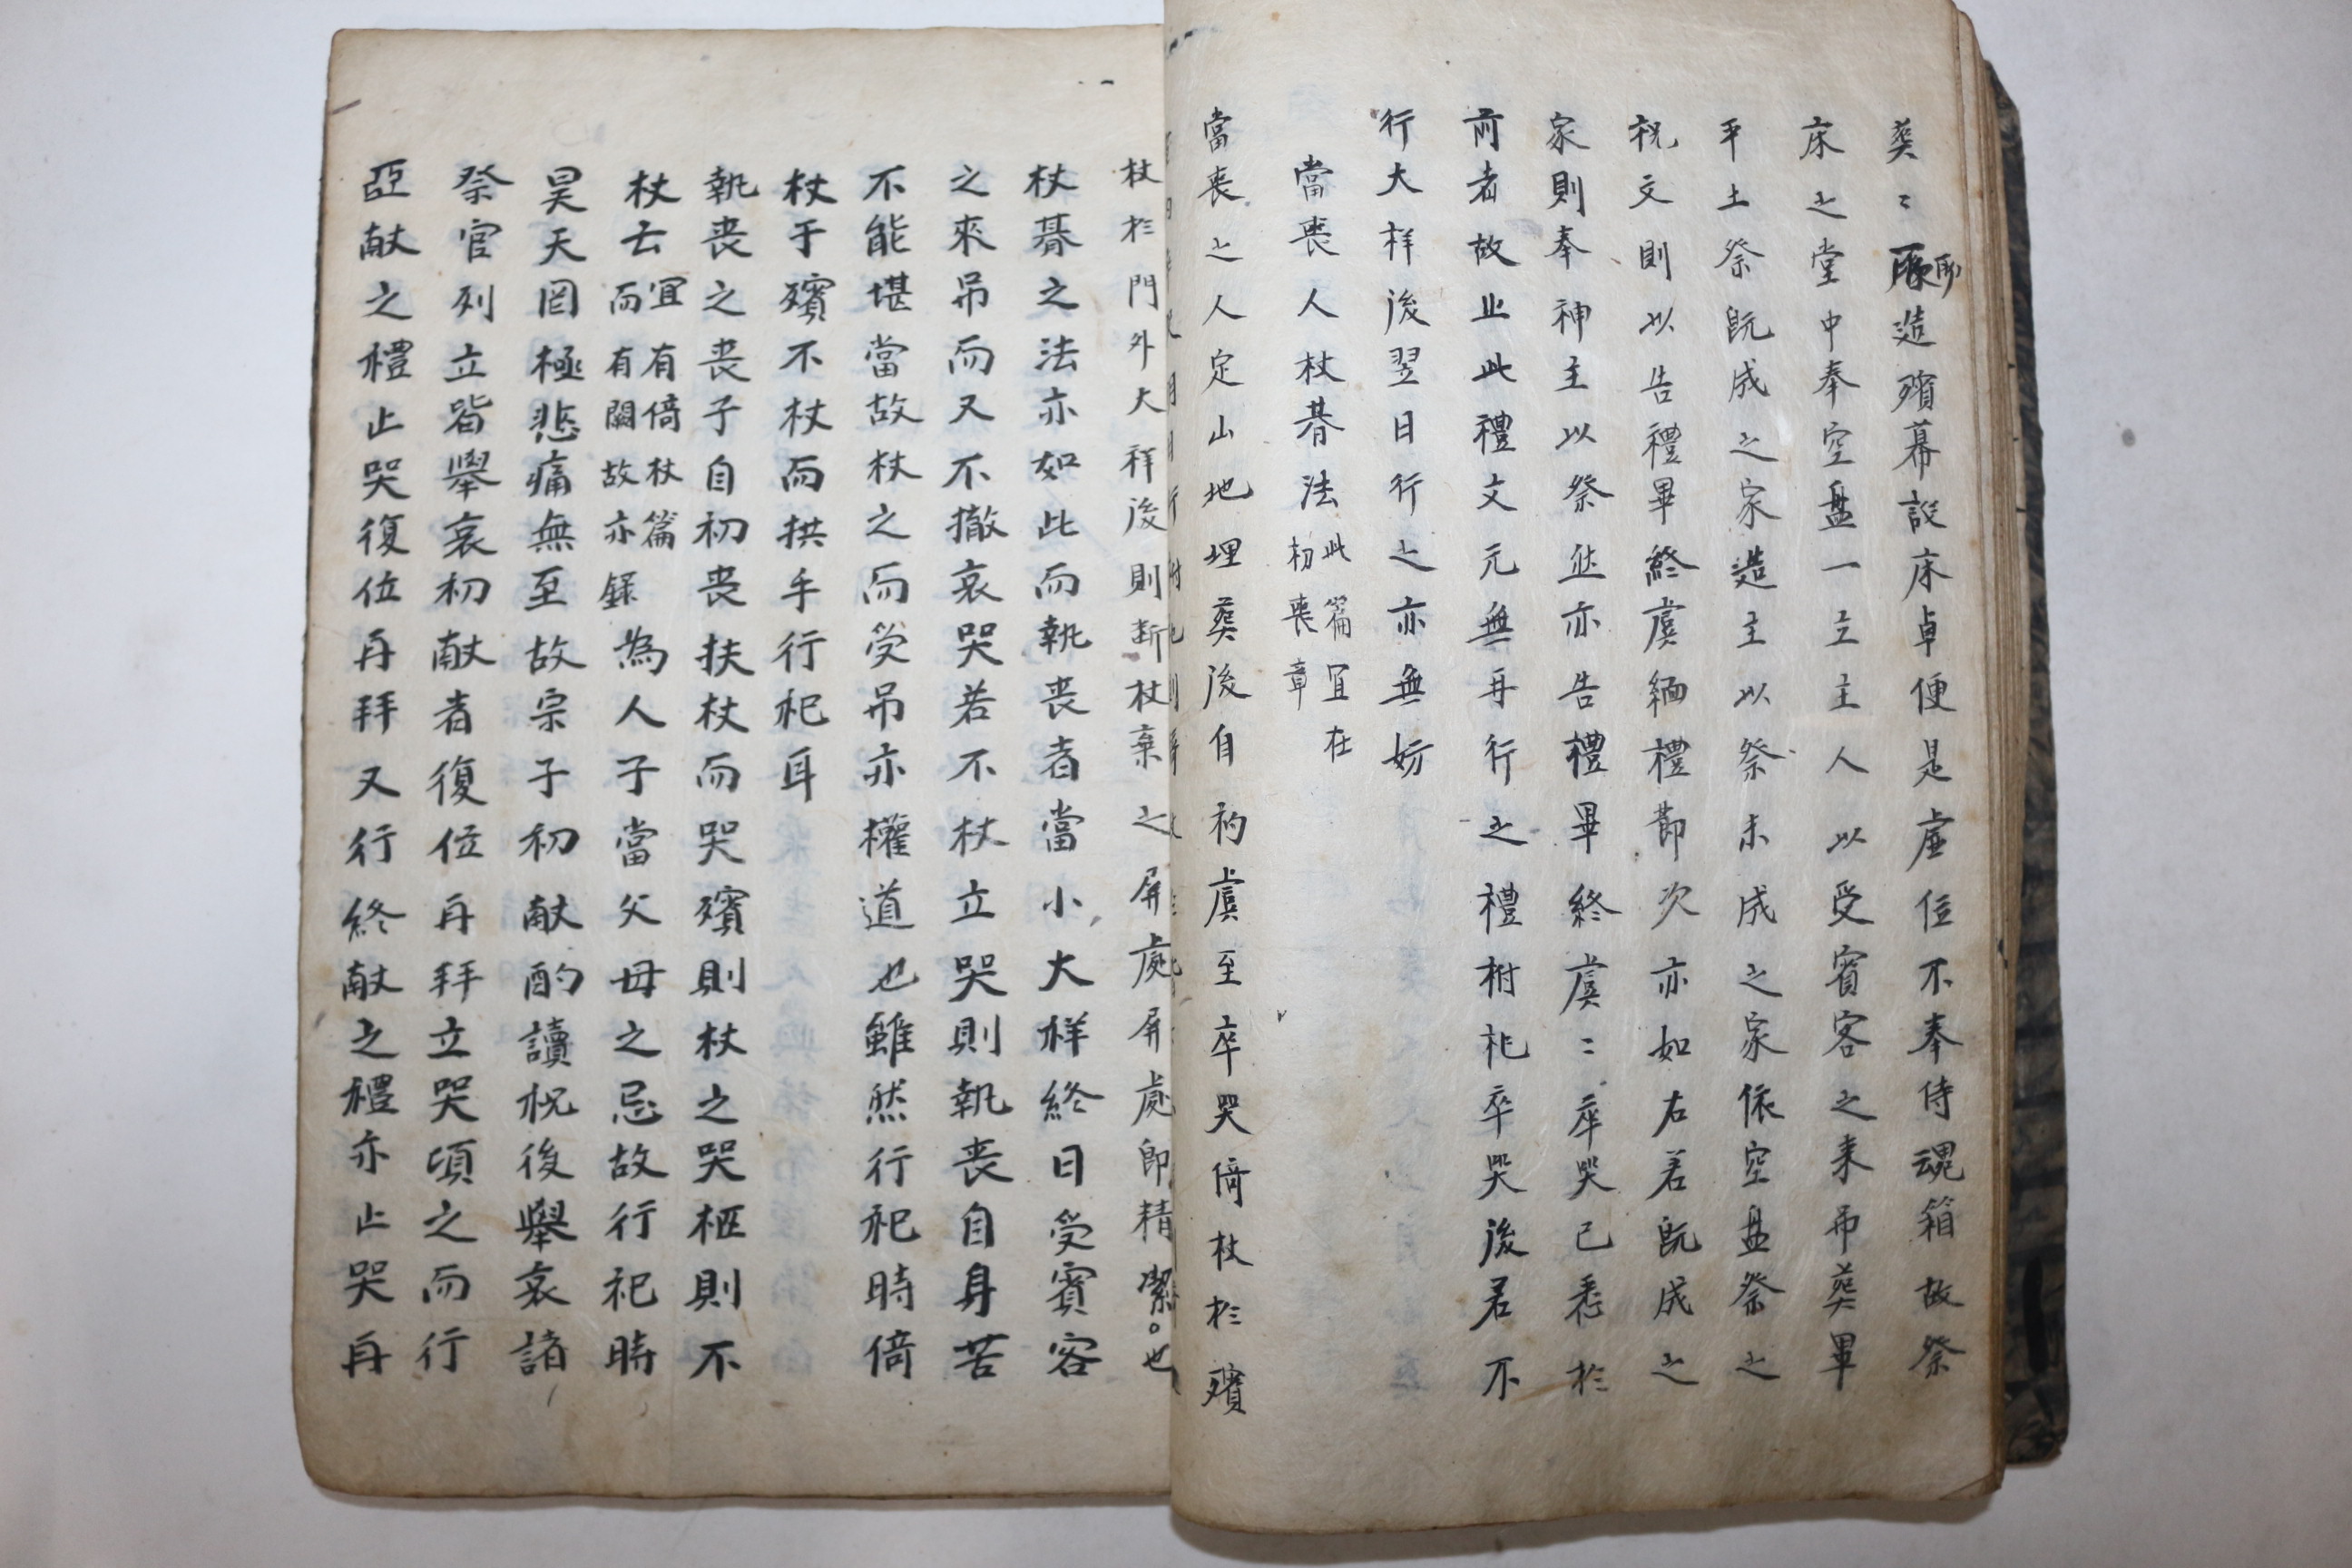 葬〻所造殯幕設床卓便是虛位不奉侍魂箱故祭
床之堂中奉空盤一立主人以受賓客之來吊葬畢
平土祭旣成之家造主以祭未成之家依空盘祭之
祝文則以告禮畢終虞緬禮節次亦如右若旣成之
家則奉神主以祭然亦告禮畢終虞〻卒哭已悉於
前者故止此禮文元無再行之禮柎礼卒哭後若不
行大祥後翌日行之亦無妨
當喪人杖朞法此篇宜在初喪章
當喪之人定山地埋葬後自初虞至卒哭倚杖於殯
杖於門外大祥後則断杖棄之屏處屏處卽精潔也
杖朞之法亦如此而執喪者當小大祥終日受賓客
之來吊而又不撤哀哭若不杖立哭則執喪自身苦
不能堪當故杖之而受吊亦權道也雖然行祀時倚
杖于殯不杖而拱手行祀耳
執喪之喪子自初喪扶杖而哭殯則杖之哭柩則不
杖云宜有倚杖篇而有闕故亦録為人子當父母之忌故行祀時
昊天罔極悲痛無至故宗子初献酌讀祝後舉哀諸
祭官列立皆舉哀初献者復位再拜立哭頃之而行
亞献之禮止哭復位再拜又行終献之禮亦止哭再